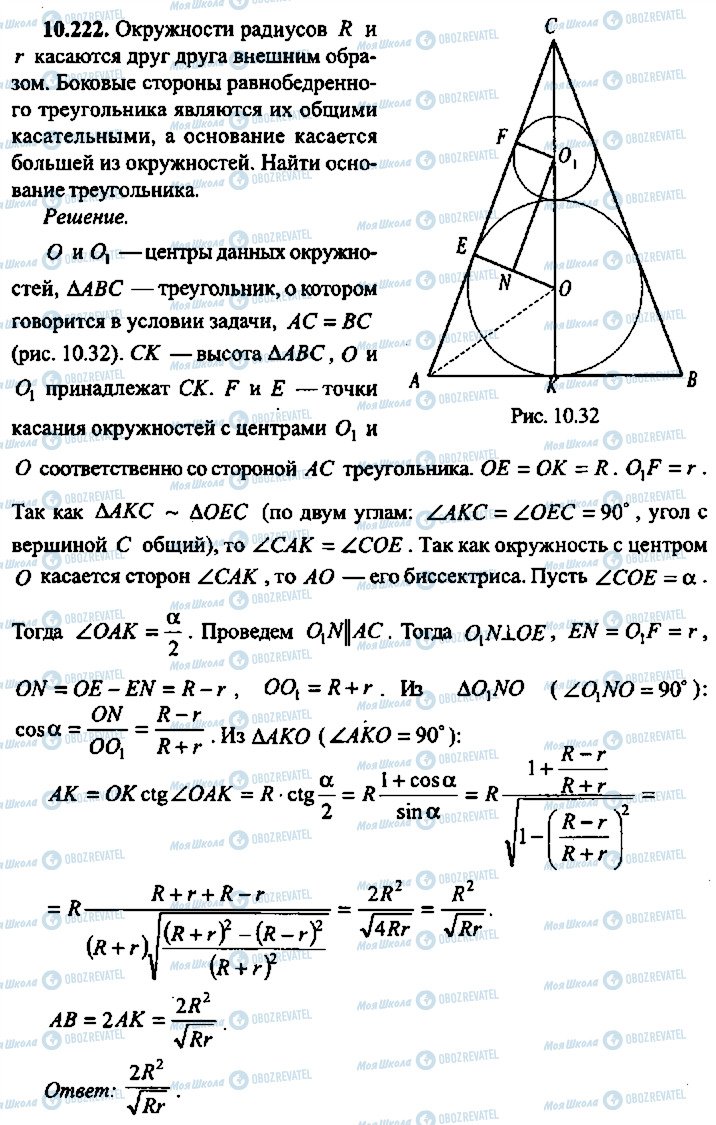 10.222. Окружности радиусов R и
r касаются друг друга внешним обра-
зом. Боковые стороны равнобедренно-
го треугольника являются их общими
касательными, а основание касается
большей из окружностей. Найти осно-
вание треугольника.
Решение.
O и O₁ — центры данных окружно-
стей, ΔABC — треугольник, о котором
говорится в условии задачи, AC = BC
(рис. 10.32). CK — высота ΔABC, O и
O₁ принадлежат CK. F и E — точки
касания окружностей с центрами O₁ и
C
F
O₁
E
N
O
A
K
B
Рис. 10.32
O соответственно со стороной AC треугольника. OE = OK = R. O₁F = r.
Так как ΔAKC ~ ΔOEC (по двум углам: ∠AKC = ∠OEC = 90°, угол с
вершиной C общий), то ∠CAK = ∠COE. Так как окружность с центром
O касается сторон ∠CAK, то AO — его биссектриса. Пусть ∠COE = α.
Тогда ∠OAK = α/2. Проведем O₁N∥AC. Тогда O₁N⊥OE, EN = O₁F = r,
ON = OE − EN = R − r, OO₁ = R + r. Из ΔO₁NO (∠O₁NO = 90°):
cos α = ON/OO₁ = (R − r)/(R + r). Из ΔAKO (∠AKO = 90°):
AK = OK ctg∠OAK = R · ctg α/2 = R (1 + cos α)/(sin α) = R (1 + (R − r)/(R + r))/√(1 − ((R − r)/(R + r))²) =
= R (R + r + R − r)/((R + r)√(((R + r)² − (R − r)²)/(R + r)²)) = 2R²/√(4Rr) = R²/√(Rr).
AB = 2AK = 2R²/√(Rr).
Ответ: 2R²/√(Rr).
МояШкола OBOZREVATEL